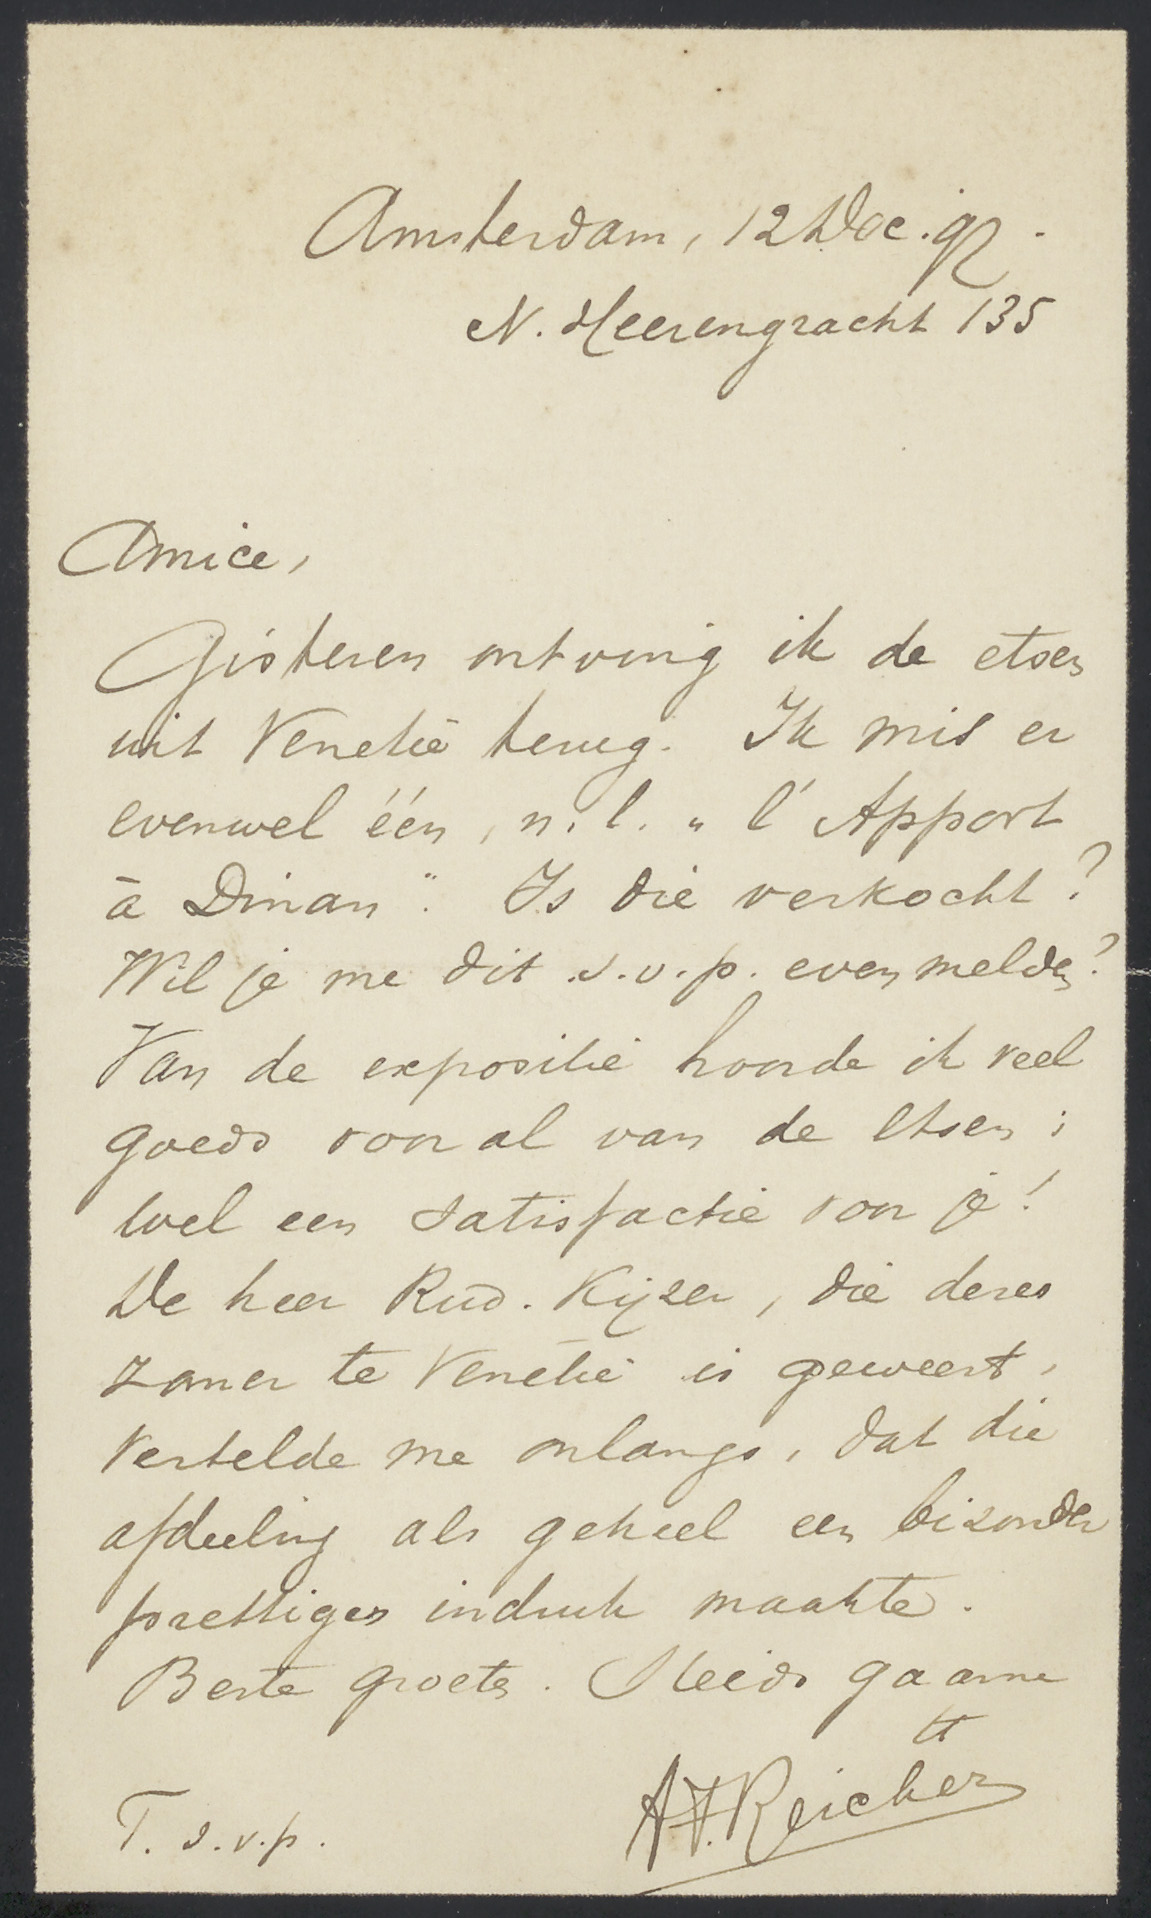 Amsterdam, 12 Dec. 97.
N. Heerengracht 135
Amice,
Gisteren ontving ik de etsen
uit Venetië terug. Ik mis er
evenwel één, n.l. „l'Apport
à Dinan". Is die verkocht?
Wil je me dit s.v.p. even melden?
Van de expositie hoorde ik veel
goeds vooral van de etsen;
wel een satisfactie voor je!
De heer Rud. Kijzer, die dezen
zomer te Venetië is geweest,
vertelde me onlangs, dat die
afdeeling als geheel een bizonder
prettigen indruk maakte.
Beste groeten. Steeds gaarne
tt
AF. Reicher
T. s.v.p.